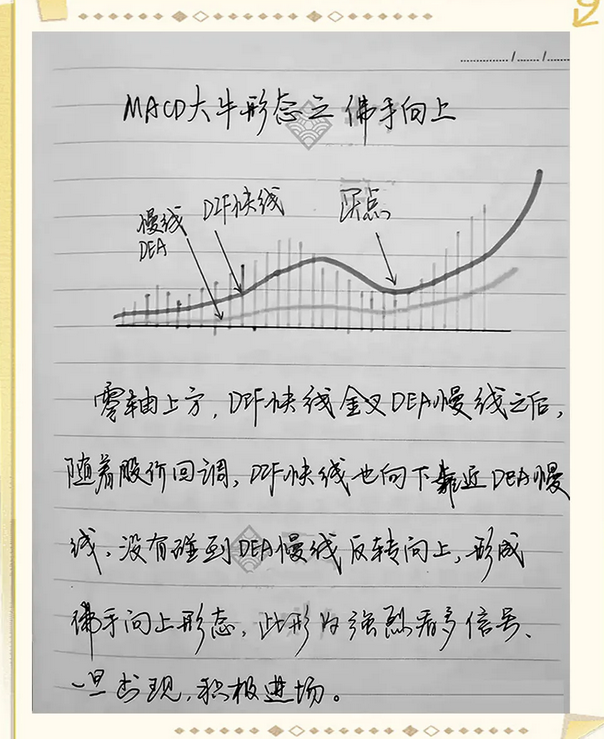 MACD大牛形态之佛手向上
DIF快线
买点
慢线
DEA
零轴上方,DIF快线金叉DEA慢线之后,
随着股价回调,DIF快线也向下靠近DEA慢
线,没有碰到DEA慢线反转向上,形成
佛手向上形态,此形为强烈看多信号、
一旦出现,积极进场。